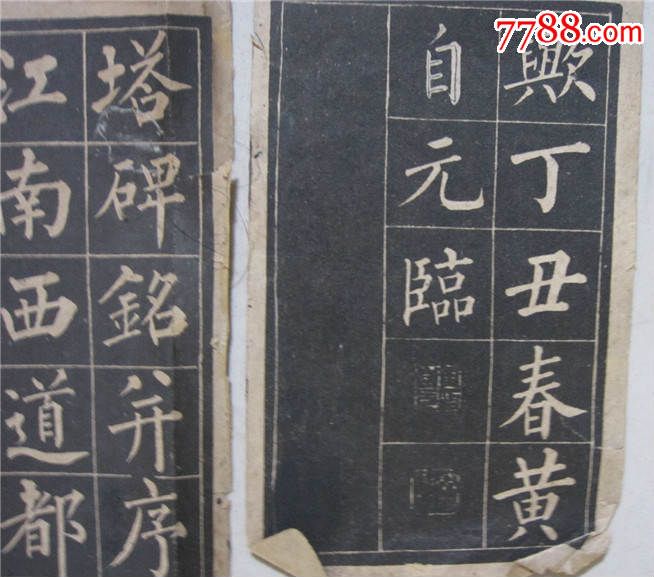 7788.com
塔碑銘并序
江南西道都
歟丁丑春黄
自元臨